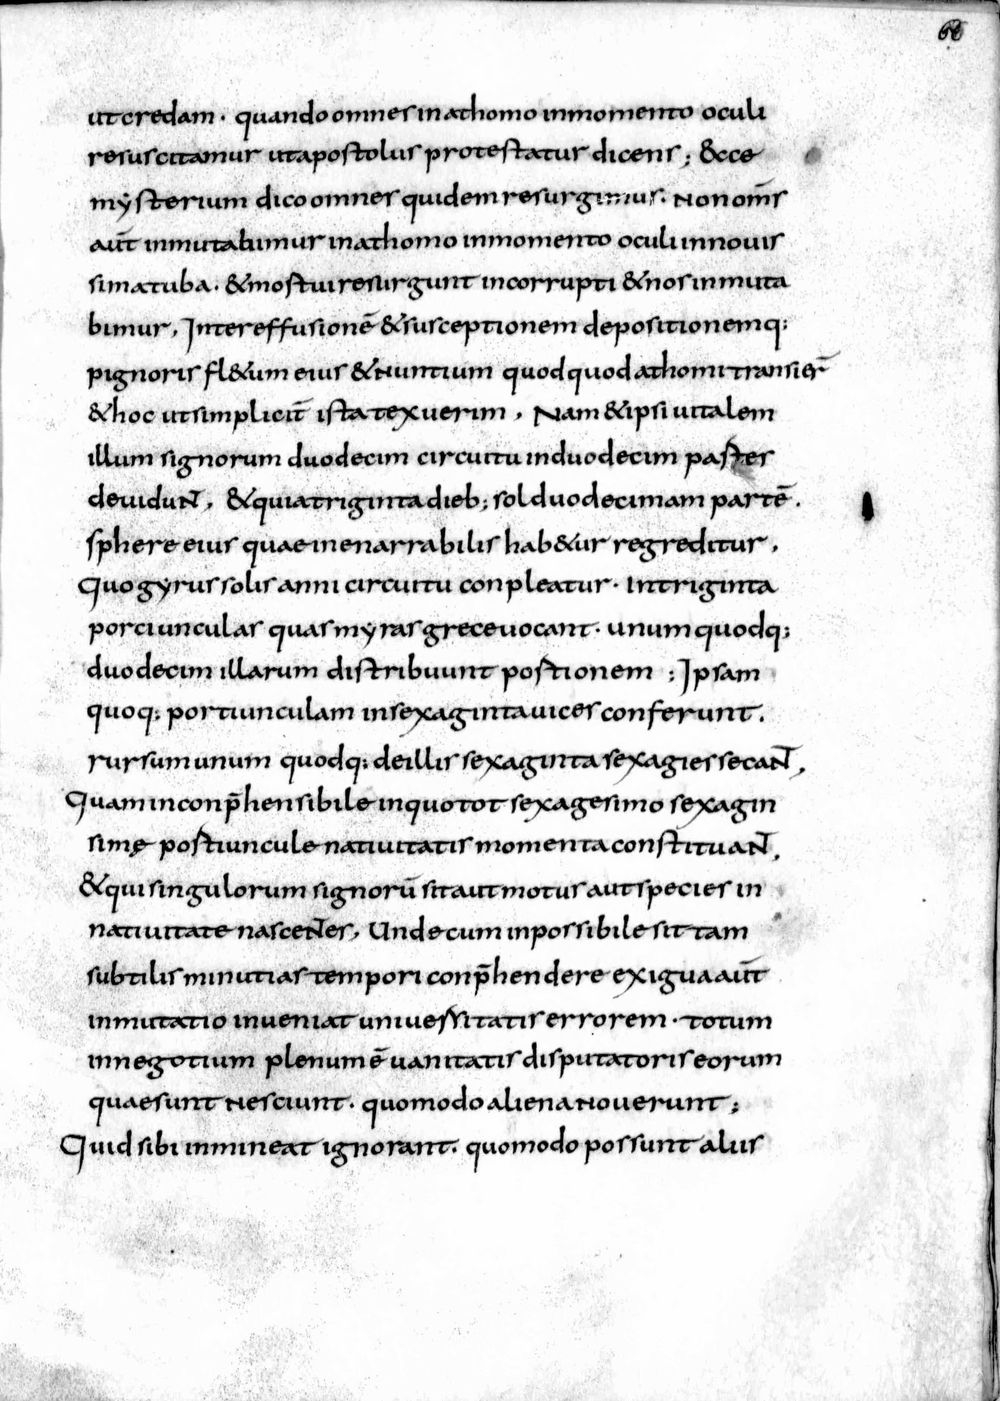 66
ut credam · quando omnes in athomo in momento oculi
resuscitamur ut apostolus protestatur dicens ; &cce
mẏsterium dico omnes quidem resurgimus. Non om̄s
aut̄ inmutabimur in athomo in momento oculi in nouis
sima tuba · & mostui resurgunt incorrupti & nos inmuta
bimur, Inter effusionē & susceptionem depositionemq;
pignoris fl&um eius & Nuntium quod quod athomi transier̄
& hoc ut simplicit̄ ista texuerim , Nam & ipsi uitalem
illum signorum duodecim circuitu in duodecim pastes
deuiduN̄T, & quia triginta dieb; sol duodecimam partē .
sphere eius quae inenarrabilis hab&ur regreditur ,
Quo gyrus solis anni circuitu conpleatur · Intriginta
porciunculas quas mẏras grece uocant · unum quodq;
duodecim illarum distribuunt postionem ; Ipsam
quoq; portiunculam in sexaginta uices conferunt .
rursum unum quodq; de illis sexaginta sexagies secaN̄T ,
Quam inconp̄hensibile in quo tot sexagesimo sexagin
simę postiuncule natiuitatis momenta constituaN̄T ,
& qui singulorum signorū sit aut motus aut species in
natiuitate nasceN̄Tes, Unde cum inpossibile sit tam
subtilis minutias tempori conp̄hendere exigua aut̄
inmutatio inueniat uniuessitatis errorem · totum
in negotium plenum ē uanitatis disputatoris eorum
quae sunt Nesciunt · quomodo aliena Nouerunt ;
Quid sibi inmineat ignorant. quomodo possunt aliis